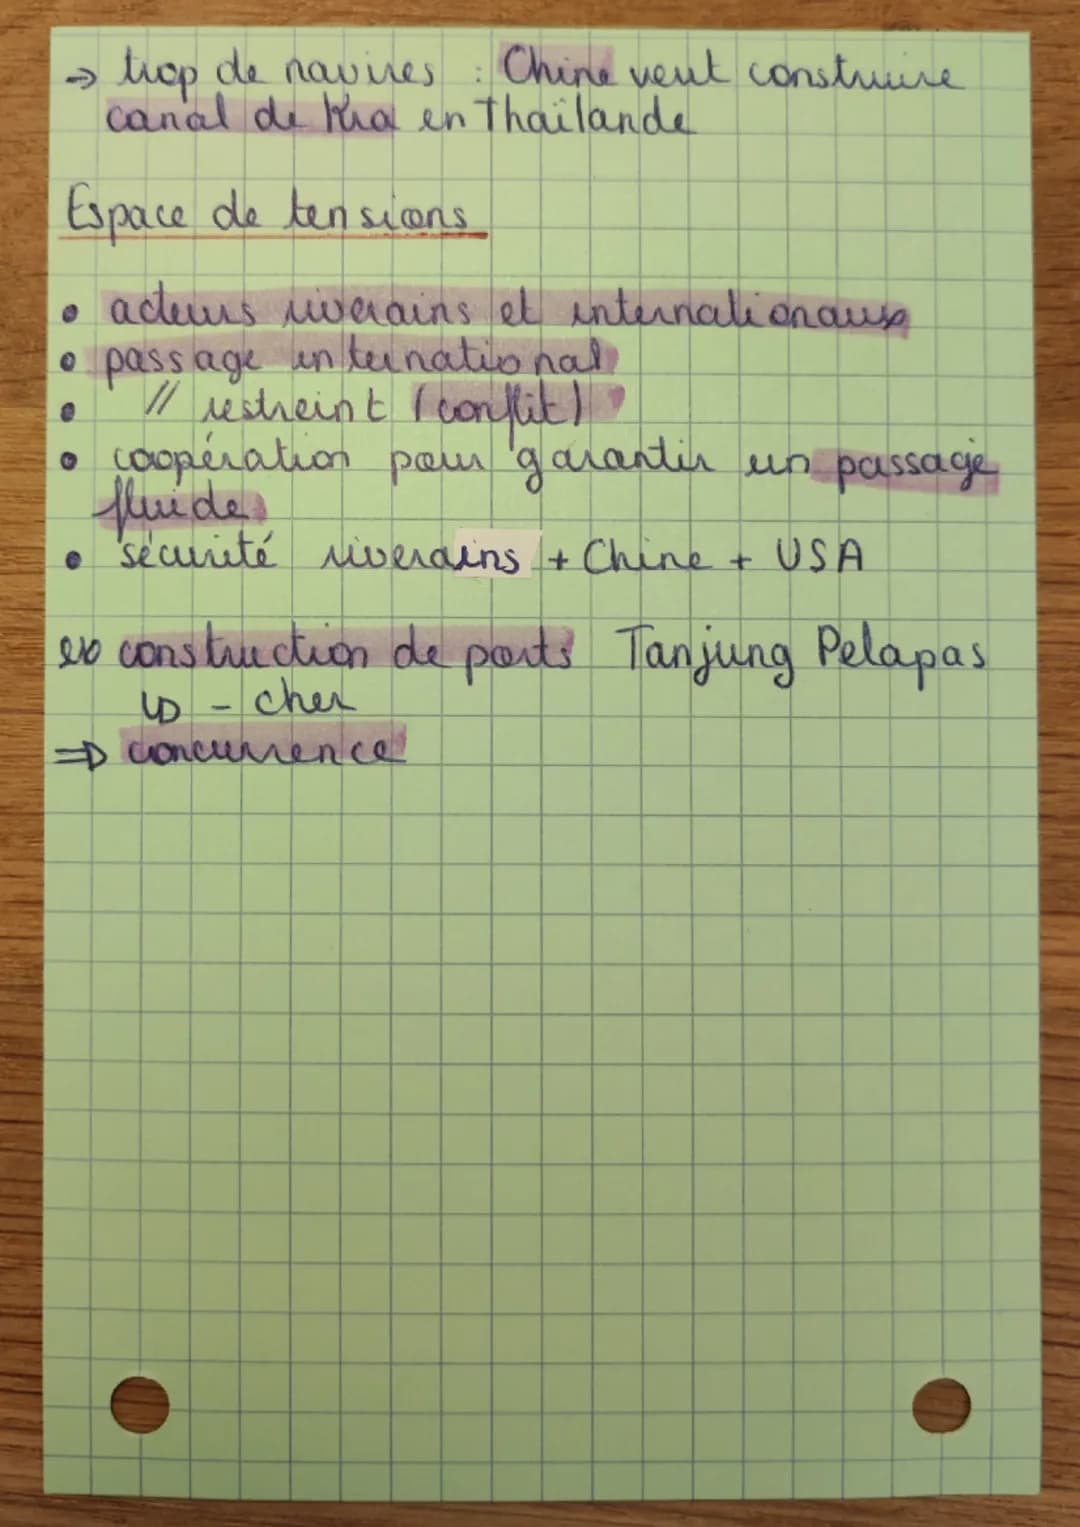 → trop de navires : Chine veut construire
canal de Kra en Thaïlande
Espace de tensions
• acteurs riverains et internationaux
• passage international
• // restreint (conflit)
• coopération pour garantir un passage
fluide
• sécurité riverains + Chine + USA
ex construction de ports Tanjung Pelapas
↳ - cher
⇒ concurrence